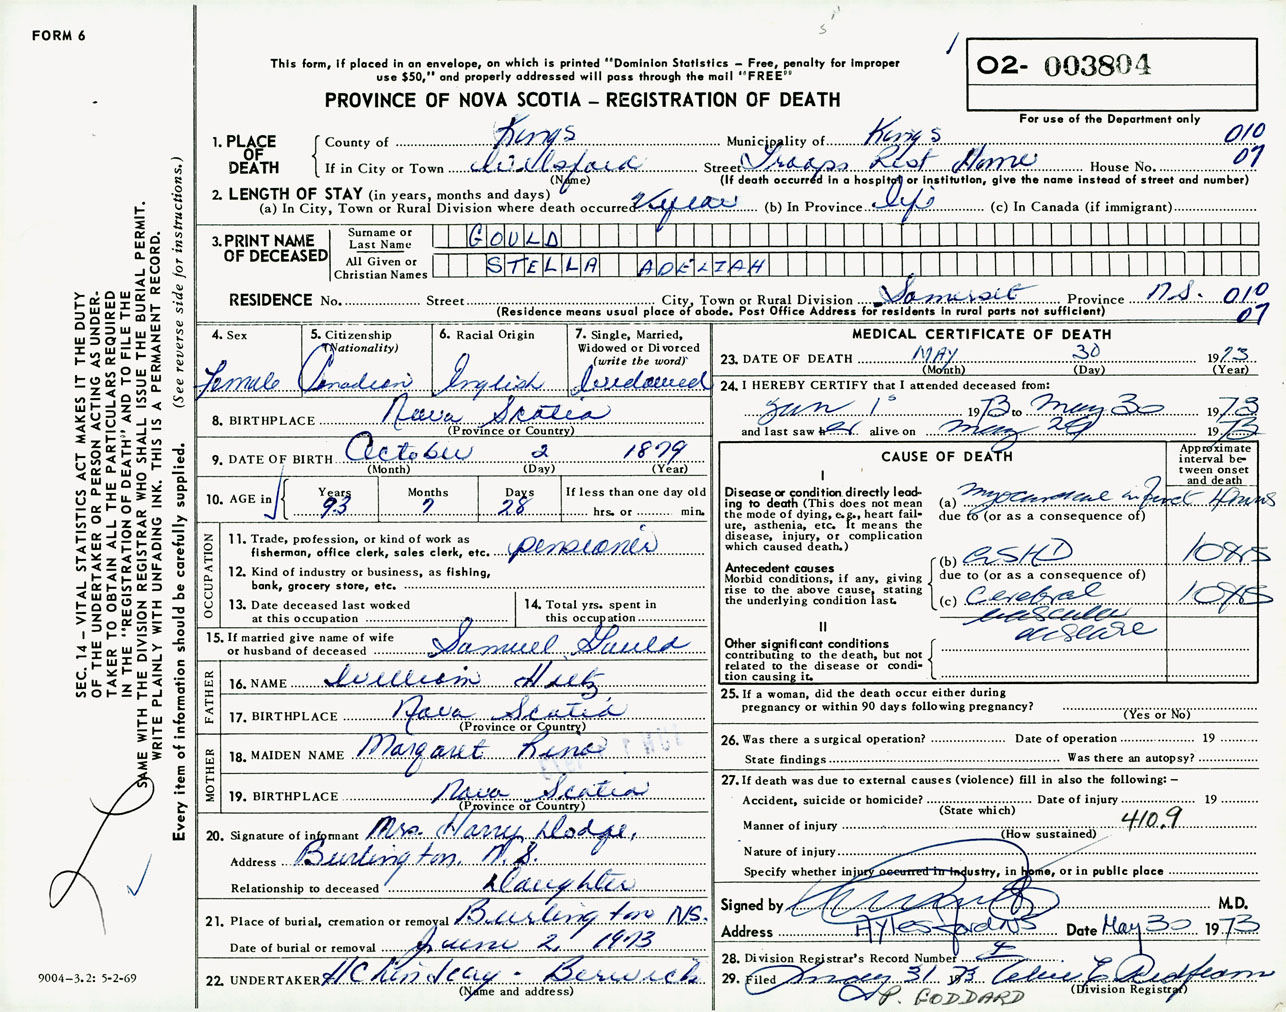 FORM 6
O2- 003804
This form, if placed in an envelope, on which is printed "Dominion Statistics – Free, penalty for improper
use $50," and properly addressed will pass through the mail "FREE"
PROVINCE OF NOVA SCOTIA – REGISTRATION OF DEATH
For use of the Department only
1. PLACE OF DEATH County of Kings Municipality of Kings 010
If in City or Town Street Troops Rest Home House No. 07
(Name) (If death occurred in a hospital or institution, give the name instead of street and number)
2. LENGTH OF STAY (in years, months and days)
(a) In City, Town or Rural Division where death occurred year (b) In Province life (c) In Canada (if immigrant)
3. PRINT NAME OF DECEASED Surname or Last Name GOULD
All Given or Christian Names STELLA ADELIAH
RESIDENCE No. Street City, Town or Rural Division Somerset Province N.S. 010
(Residence means usual place of abode. Post Office Address for residents in rural parts not sufficient) 07
4. Sex Female
5. Citizenship (Nationality) Canadian
6. Racial Origin English
7. Single, Married, Widowed or Divorced (write the word) Widowed
8. BIRTHPLACE Nova Scotia
(Province or Country)
9. DATE OF BIRTH October 2 1879
(Month) (Day) (Year)
10. AGE in Years 93 Months 7 Days 28 If less than one day old
hrs. or min.
OCCUPATION
11. Trade, profession, or kind of work as
fisherman, office clerk, sales clerk, etc. pensioner
12. Kind of industry or business, as fishing,
bank, grocery store, etc.
13. Date deceased last worked
at this occupation
14. Total yrs. spent in
this occupation
15. If married give name of wife
or husband of deceased Samuel Gould
FATHER
16. NAME William Hiltz
17. BIRTHPLACE Nova Scotia
(Province or Country)
MOTHER
18. MAIDEN NAME Margaret
19. BIRTHPLACE Nova Scotia
(Province or Country)
20. Signature of informant Mrs. Harry Dodge,
Address Burlington N.S.
Relationship to deceased Daughter
21. Place of burial, cremation or removal Burlington NS.
Date of burial or removal June 2, 1973
22. UNDERTAKER H C Lindsay - Berwick
(Name and address)
MEDICAL CERTIFICATE OF DEATH
23. DATE OF DEATH MAY 30 1973
(Month) (Day) (Year)
24. I HEREBY CERTIFY that I attended deceased from:
Jan 1 1973 to May 30 1973
and last saw her alive on May 29 1973
CAUSE OF DEATH
Approximate interval between onset and death
I
Disease or condition directly leading
to death (This does not mean
the mode of dying, e.g., heart failure,
asthenia, etc. It means the
disease, injury, or complication
which caused death.)
(a) myocardial infarct
due to (or as a consequence of)
Antecedent causes
Morbid conditions, if any, giving
rise to the above cause, stating
the underlying condition last.
(b) ASHD 10 yrs
due to (or as a consequence of)
(c) Cerebral 10 yrs
vascular
disease
II
Other significant conditions
contributing to the death, but not
related to the disease or condition
causing it.
25. If a woman, did the death occur either during
pregnancy or within 90 days following pregnancy?
(Yes or No)
26. Was there a surgical operation? Date of operation 19
State findings Was there an autopsy?
27. If death was due to external causes (violence) fill in also the following: –
Accident, suicide or homicide? Date of injury 19
(State which)
Manner of injury 410.9
(How sustained)
Nature of injury
Specify whether injury occurred in industry, in home, or in public place
Signed by M.D.
Address Aylesford NS Date May 30 1973
28. Division Registrar's Record Number
29. Filed May 31 1973
(Division Registrar)
P. GODDARD
SEC. 14 – VITAL STATISTICS ACT MAKES IT THE DUTY
OF THE UNDERTAKER OR PERSON ACTING AS UNDERTAKER
TO OBTAIN ALL THE PARTICULARS REQUIRED
IN THE "REGISTRATION OF DEATH" AND TO FILE THE
SAME WITH THE DIVISION REGISTRAR WHO SHALL ISSUE THE BURIAL PERMIT.
WRITE PLAINLY WITH UNFADING INK. THIS IS A PERMANENT RECORD.
Every item of information should be carefully supplied. (See reverse side for instructions.)
9004–3.2: 5-2-69